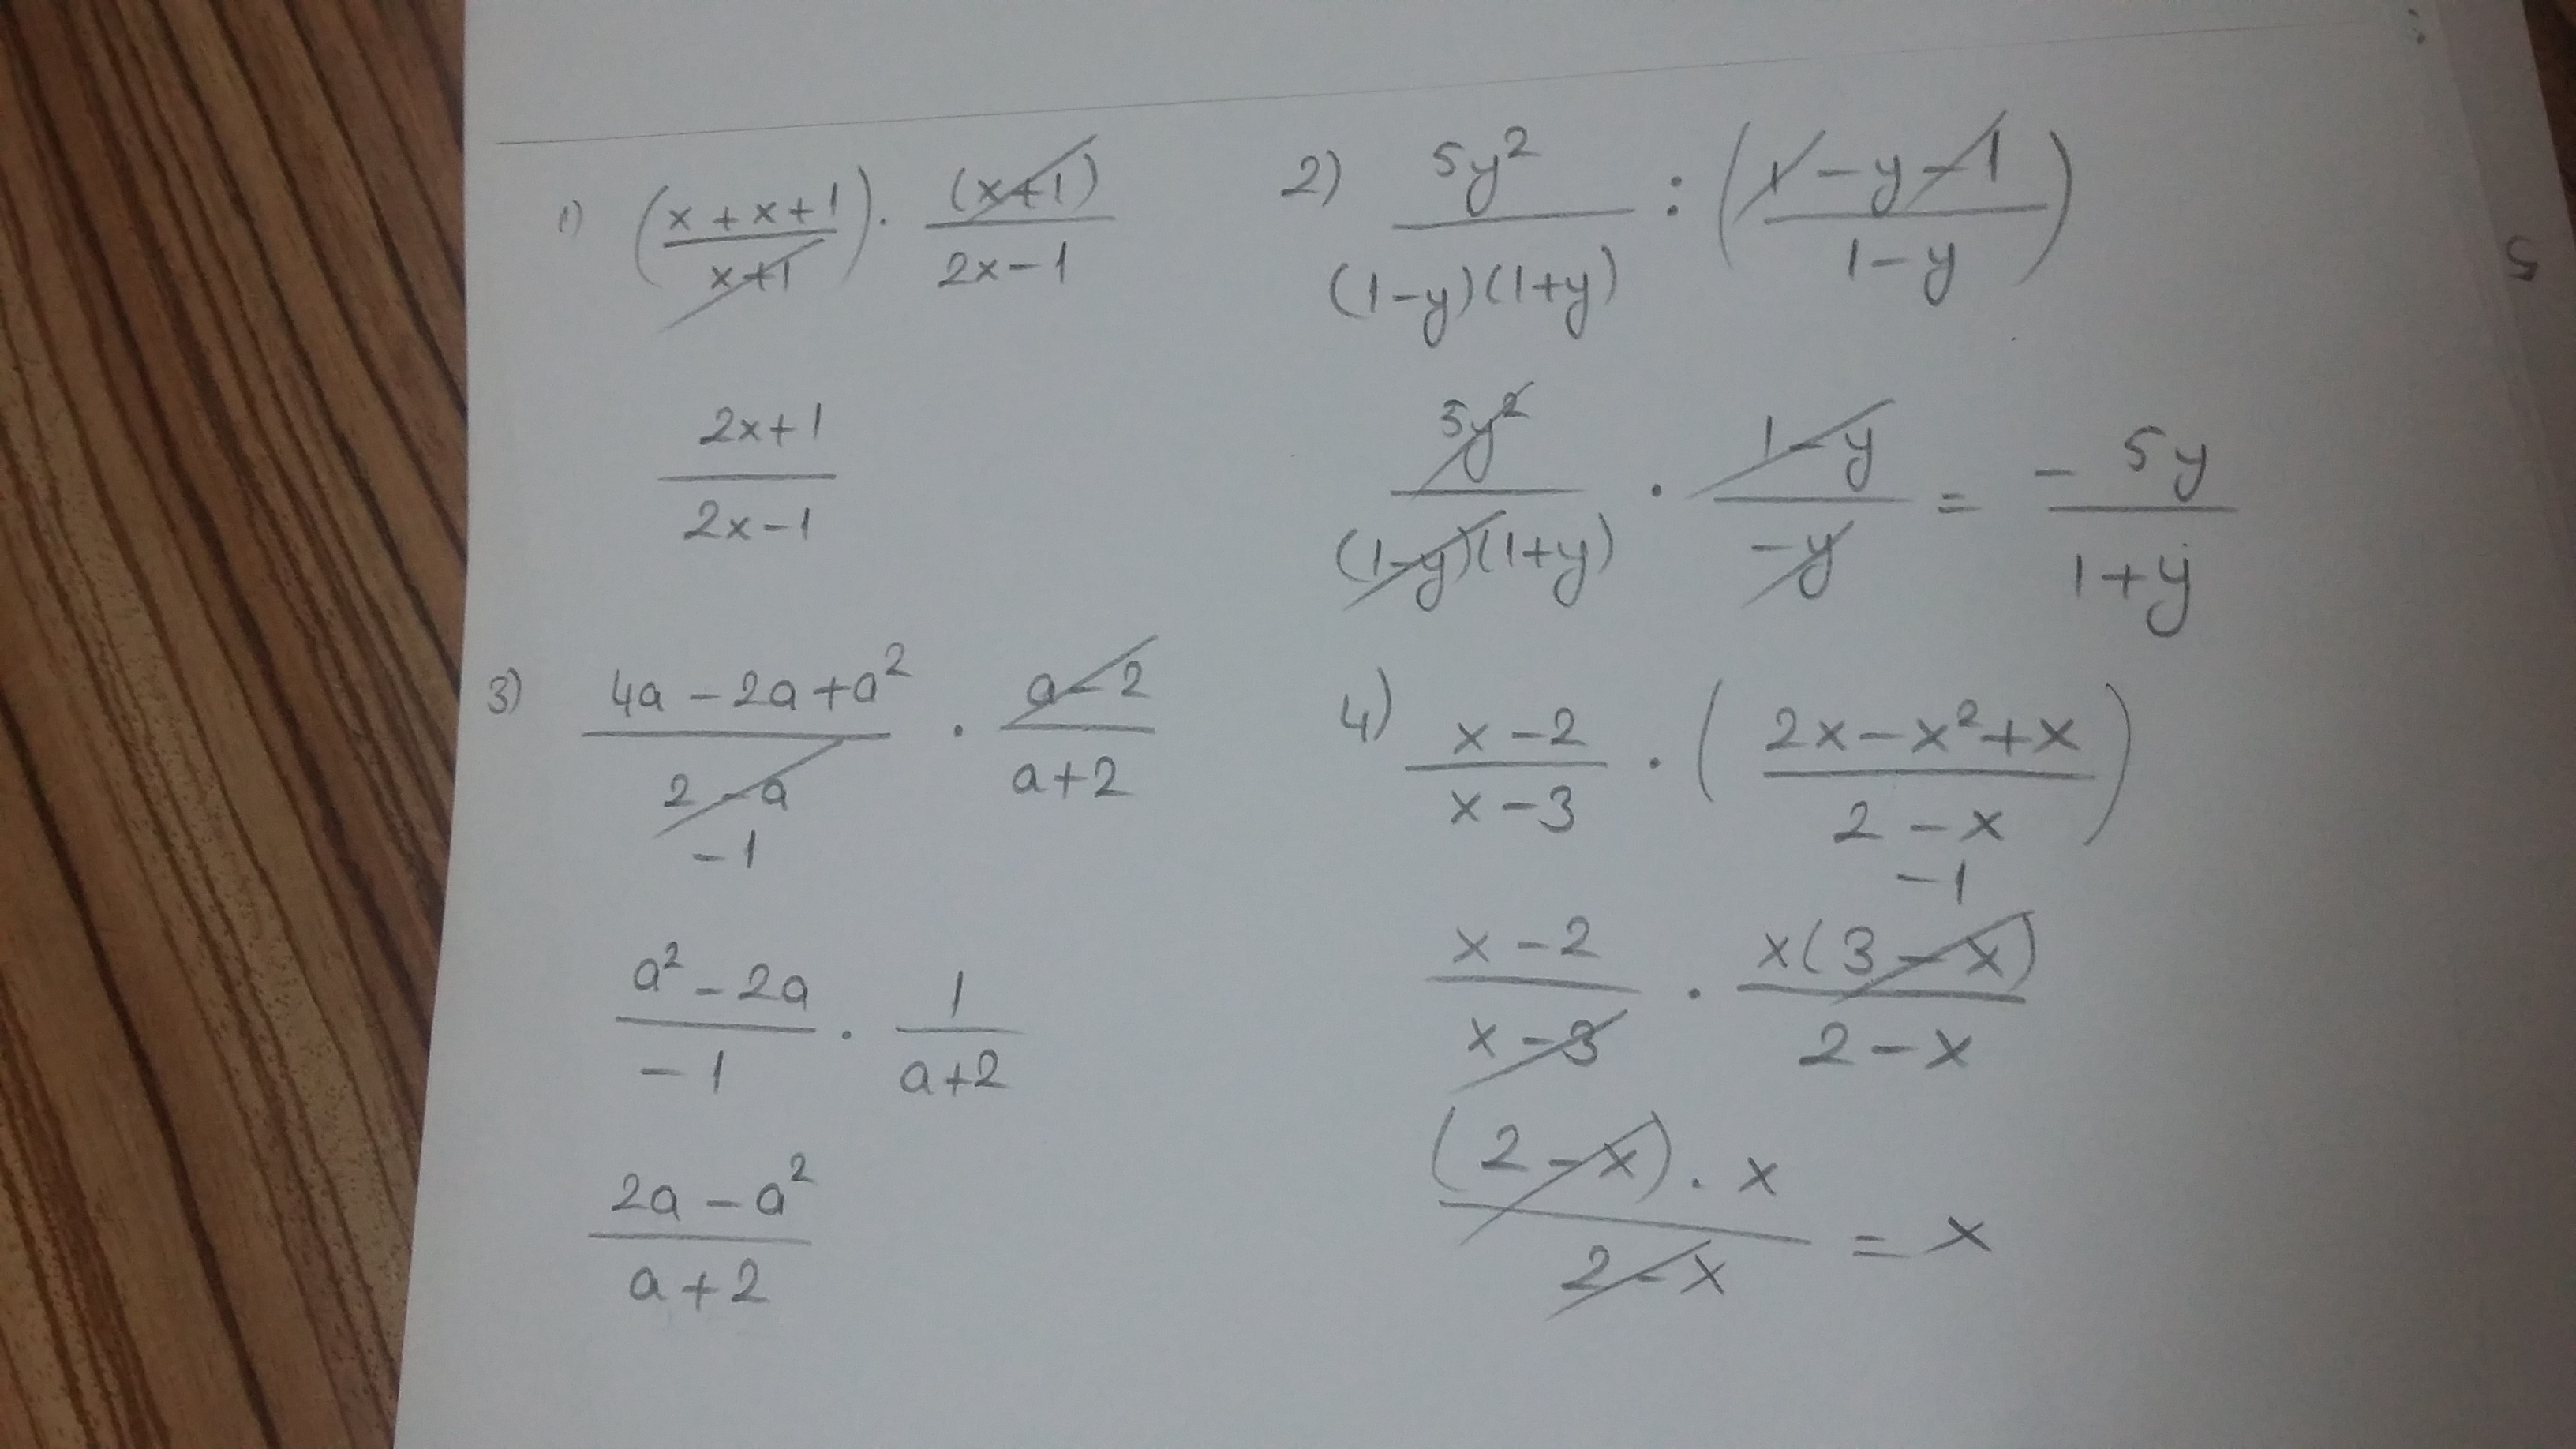 1) (x+x+1 / x+1) · (x+1) / 2x-1
2x+1 / 2x-1
2) 5y² / (1-y)(1+y) : (1-y-1 / 1-y)
5y² / (1-y)(1+y) · 1-y / -y = - 5y / 1+y
3) 4a-2a+a² / 2-a · a-2 / a+2
-1
a²-2a / -1 · 1 / a+2
2a-a² / a+2
4) x-2 / x-3 · (2x-x²+x / 2-x)
-1
x-2 / x-3 · x(3-x) / 2-x
(2-x)·x / 2-x = x
5